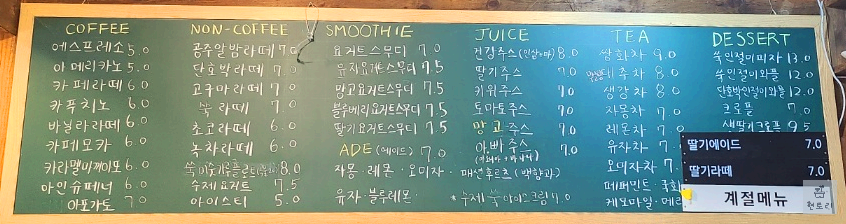 COFFEE
에스프레소 5.0
아메리카노 5.0
카페라떼 6.0
카푸치노 6.0
바닐라라떼 6.0
카페모카 6.0
카라멜마끼아또 6.0
아인슈페너 6.0
아포가토 7.0
NON-COFFEE
공주알밤라떼 7.0
단호박라떼 7.0
고구마라떼 7.0
쑥라떼 7.0
초코라떼 6.0
녹차라떼 6.0
8.0
수제요거트 7.5
아이스티 5.0
SMOOTHIE
요거트스무디 7.0
유자요거트스무디 7.5
망고요거트스무디 7.5
블루베리요거트스무디 7.5
딸기요거트스무디 7.5
ADE (에이드) 7.0
자몽·레몬·오미자·패션후르츠(백향과)
유자·블루레몬·
JUICE
건강주스(인삼+마) 8.0
딸기주스 7.0
키위주스 7.0
토마토주스 7.0
망고주스 7.0
아바주스 7.0
*수제쑥아이스크림 7.0
TEA
쌍화차 9.0
대추차 8.0
생강차 8.0
자몽차 7.0
레몬차 7.0
유자차 7.0
오미자차
페퍼민트·국화
캐모마일·
DESSERT
쑥인절미피자 13.0
쑥인절미와플 12.0
단호박인절미와플 12.0
크로플 7.0
생딸기크로플 9.5
딸기에이드 7.0
딸기라떼 7.0
계절메뉴